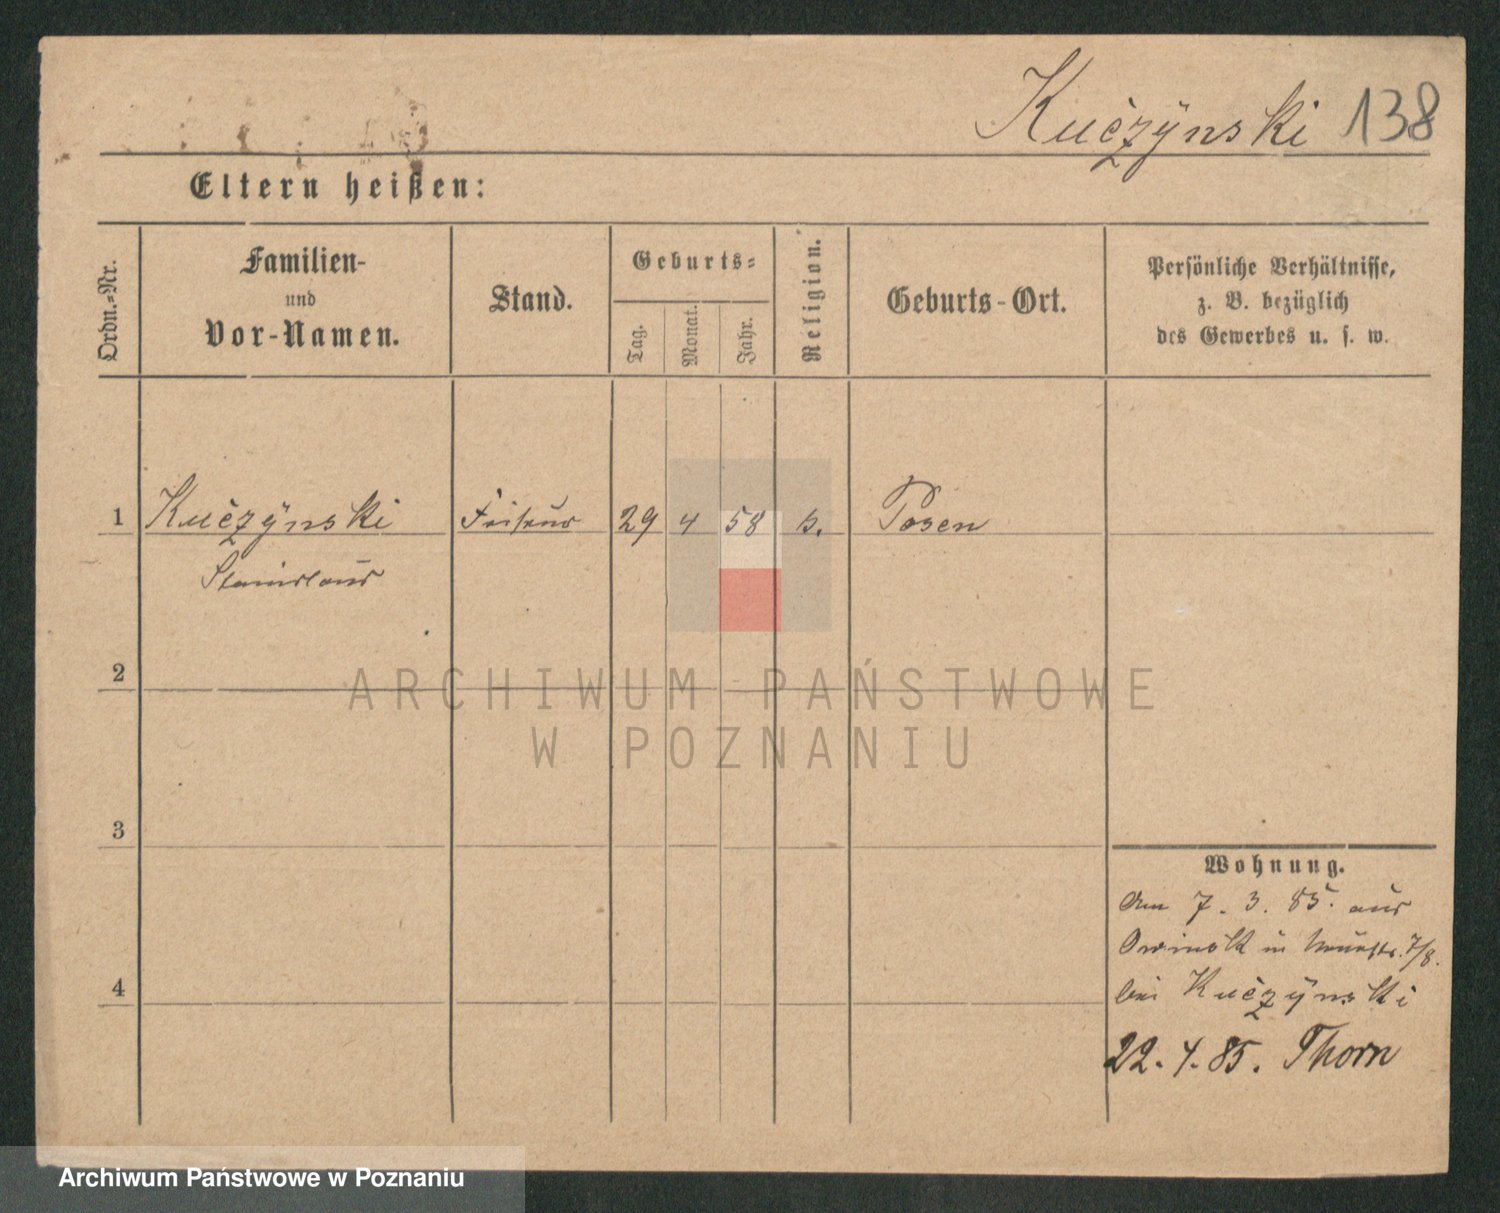 Kuczÿnski 138
Eltern heißen:
Ordn.=Nr.
Familien-
und
Vor-Namen.
Stand.
Geburts=
Tag.
Monat.
Jahr.
Religion.
Geburts-Ort.
Persönliche Verhältnisse,
z. B. bezüglich
des Gewerbes u. s. w.
1 Kuczÿnski Friseur 29 4 58 k. Posen
Stanislaus
2
3
4
Wohnung.
Am 7. 3. 85. aus
in 7/8.
bei Kuczÿnski
22. 4. 85. Thorn
ARCHIWUM PAŃSTWOWE
W POZNANIU
Archiwum Państwowe w Poznaniu